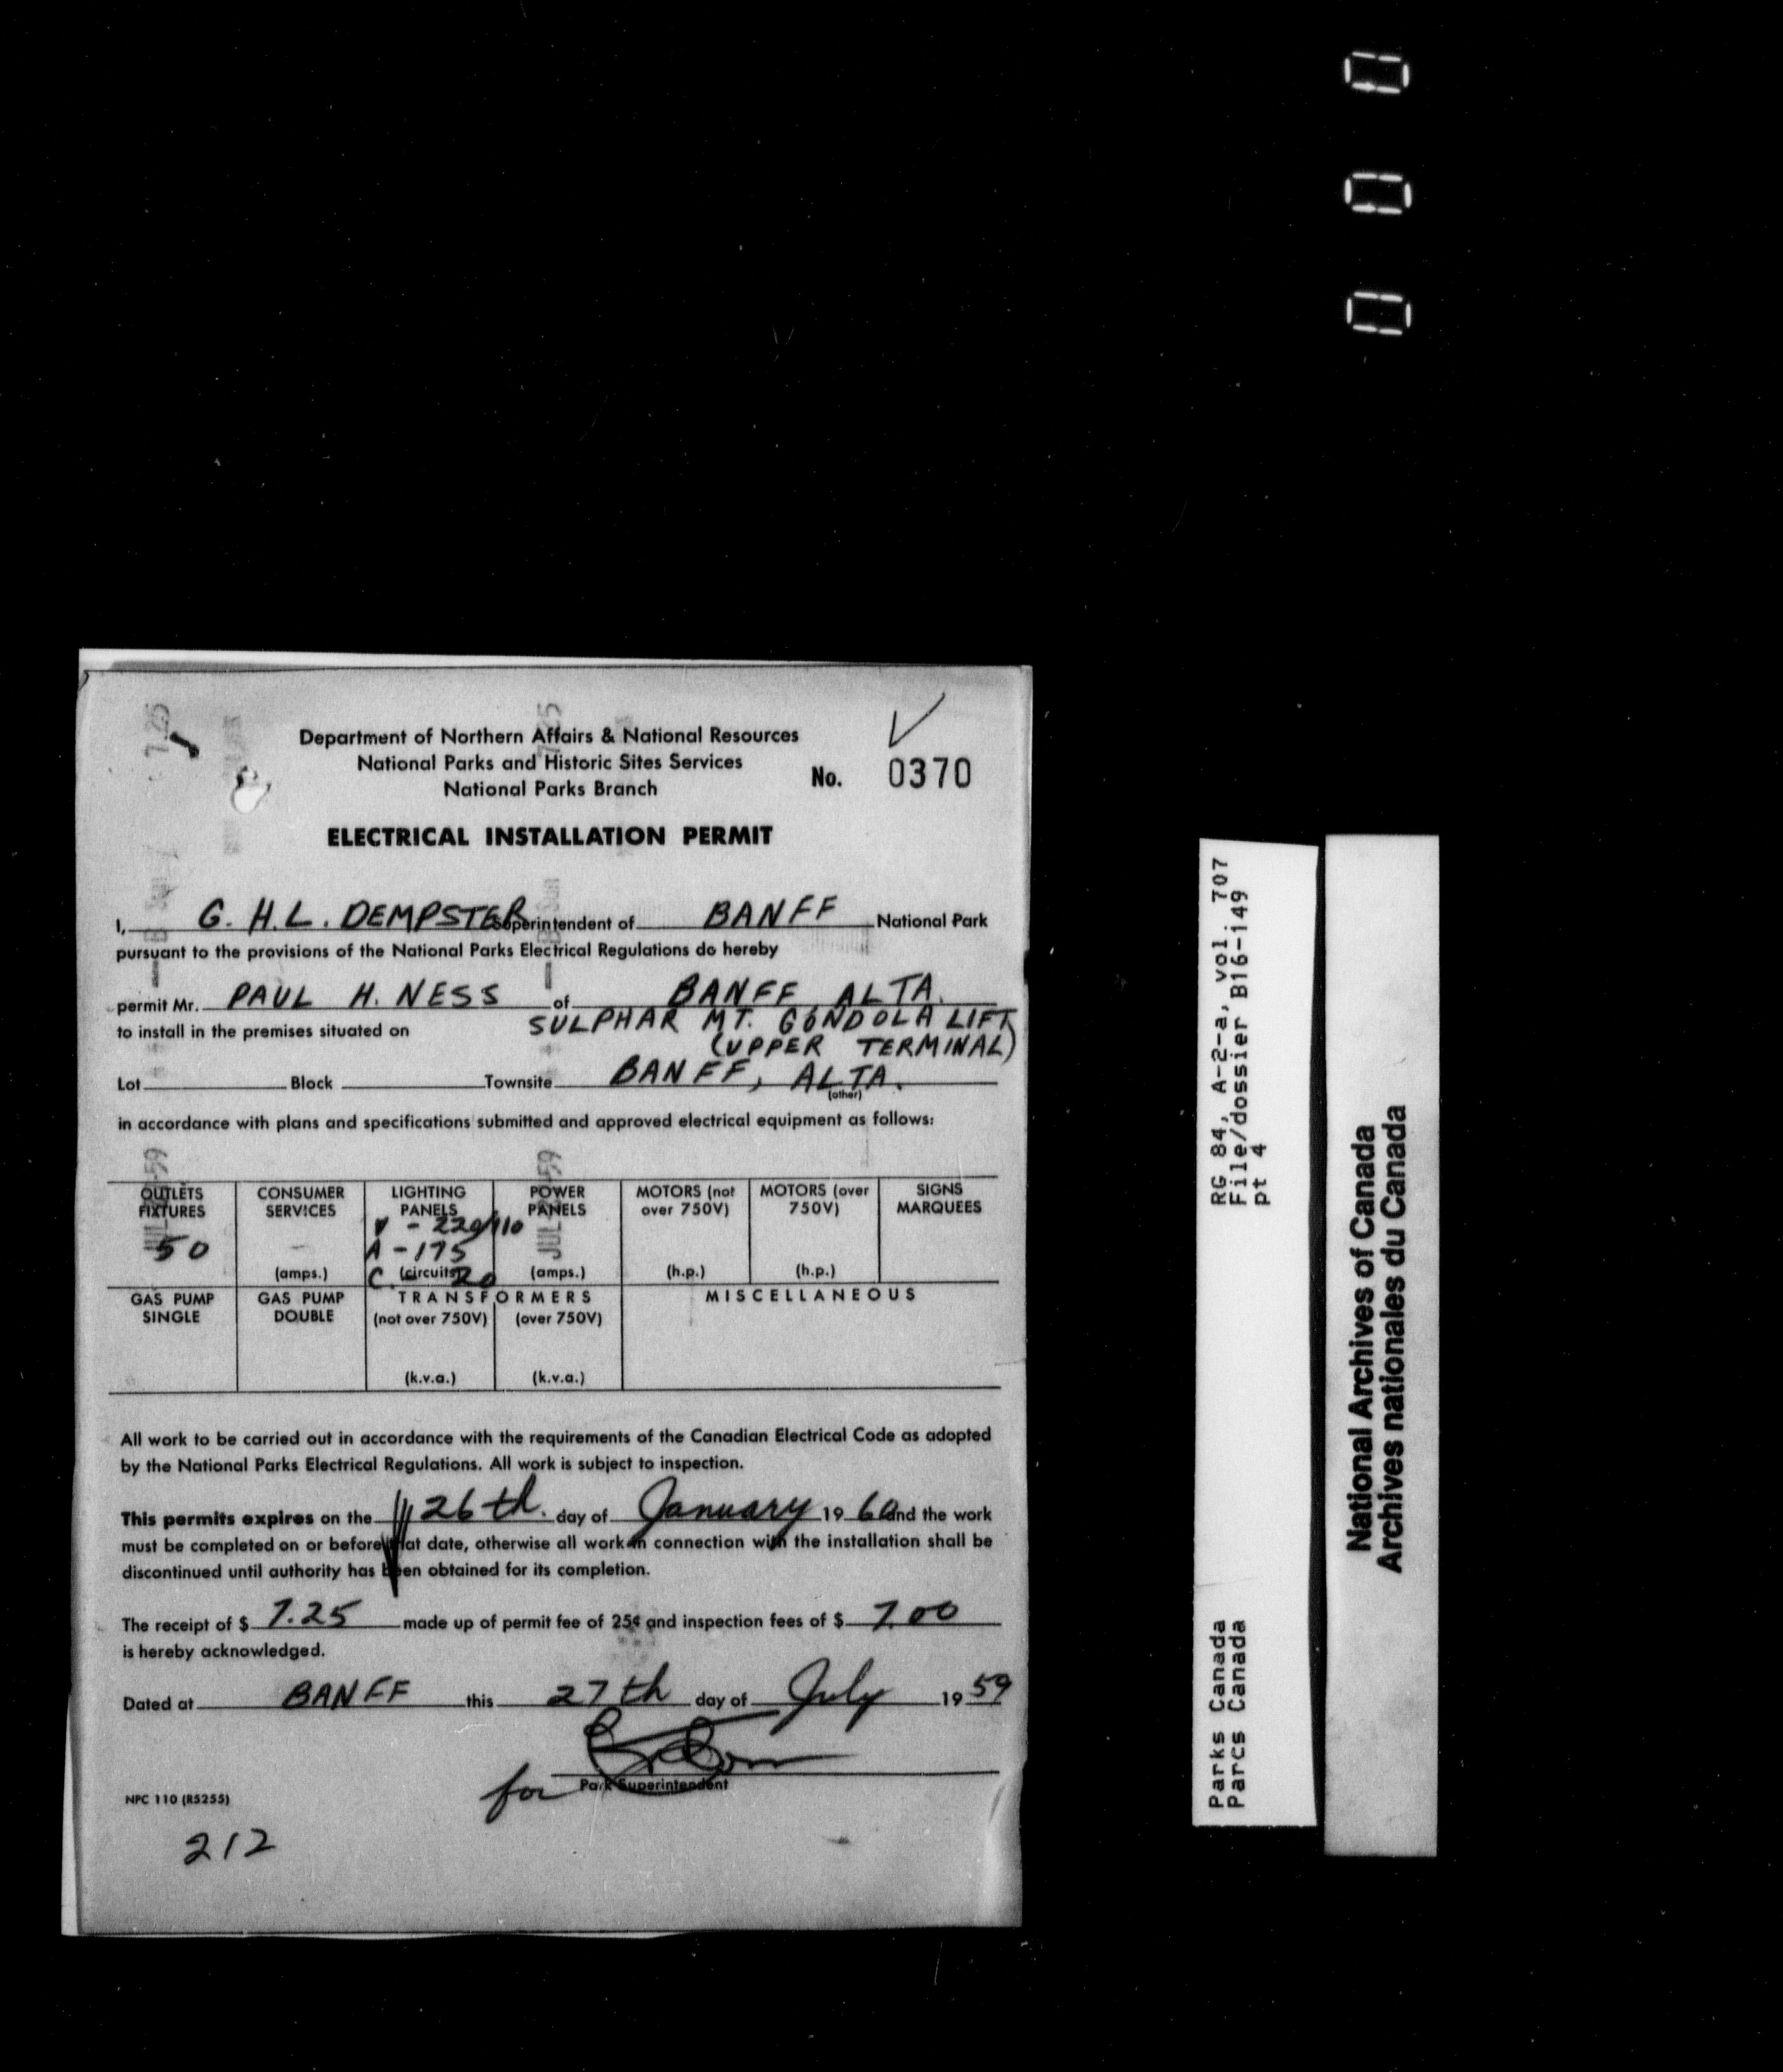 Department of Northern Affairs & National Resources
National Parks and Historic Sites Services
National Parks Branch
No. 0370
ELECTRICAL INSTALLATION PERMIT
I, G. H.L. DEMPSTER Superintendent of BANFF National Park
pursuant to the provisions of the National Parks Electrical Regulations do hereby
permit Mr. PAUL H. NESS of BANFF, ALTA.
to install in the premises situated on SULPHAR MT. GONDOLA LIFT
(UPPER TERMINAL)
Lot Block Townsite BANFF, ALTA.
(other)
in accordance with plans and specifications submitted and approved electrical equipment as follows:
OUTLETS FIXTURES
50
CONSUMER SERVICES
(amps.)
LIGHTING PANELS
V - 220/110
A - 175
C. (circuits) 20
POWER PANELS
(amps.)
MOTORS (not over 750V)
(h.p.)
MOTORS (over 750V)
(h.p.)
SIGNS MARQUEES
GAS PUMP SINGLE
GAS PUMP DOUBLE
TRANSFORMERS
(not over 750V) (over 750V)
(k.v.a.) (k.v.a.)
MISCELLANEOUS
All work to be carried out in accordance with the requirements of the Canadian Electrical Code as adopted
by the National Parks Electrical Regulations. All work is subject to inspection.
This permits expires on the 26th. day of January 1960 and the work
must be completed on or before that date, otherwise all work in connection with the installation shall be
discontinued until authority has been obtained for its completion.
The receipt of $ 7.25 made up of permit fee of 25¢ and inspection fees of $ 7.00
is hereby acknowledged.
Dated at BANFF this 27th day of July 1959
for Park Superintendent
NPC 110 (R5255)
212
RG 84, A-2-a, vol. 707
File/dossier B16-149
pt 4
Parks Canada
Parcs Canada
National Archives of Canada
Archives nationales du Canada
000